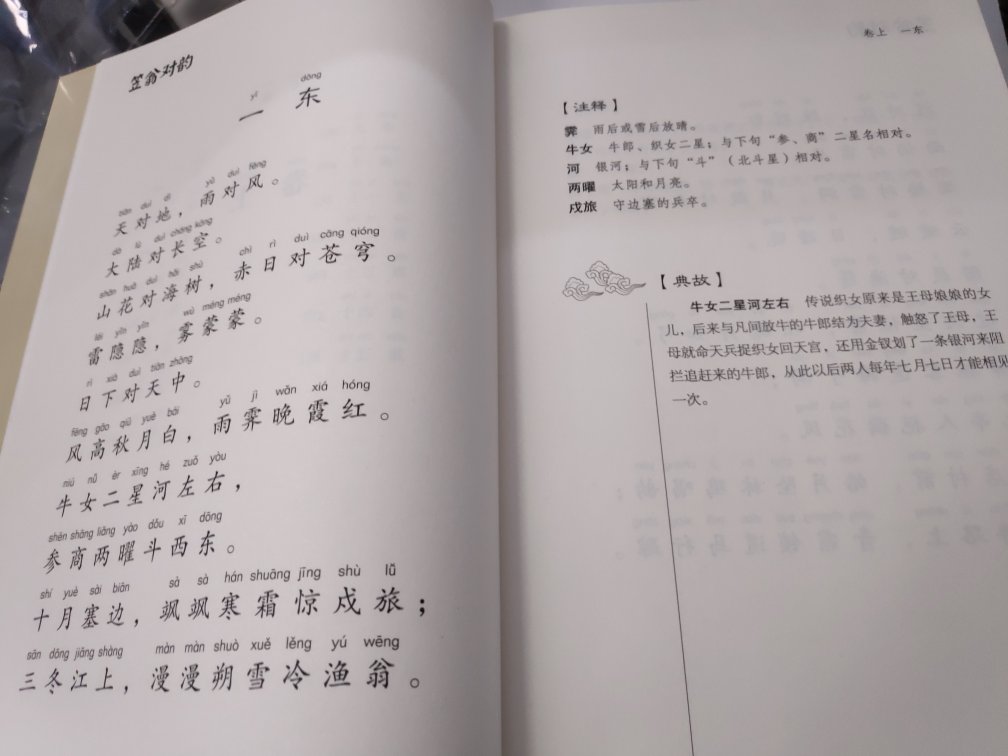 笠翁对韵
yī dōng
一 东
tiān duì dì yǔ duì fēng
天对地，雨对风。
dà lù duì cháng kōng
大陆对长空。
shān huā duì hǎi shù chì rì duì cāng qióng
山花对海树，赤日对苍穹。
léi yǐn yǐn wù méng méng
雷隐隐，雾蒙蒙。
rì xià duì tiān zhōng
日下对天中。
fēng gāo qiū yuè bái yǔ jì wǎn xiá hóng
风高秋月白，雨霁晚霞红。
niú nǚ èr xīng hé zuǒ yòu
牛女二星河左右，
shēn shāng liǎng yào dǒu xī dōng
参商两曜斗西东。
shí yuè sài biān sà sà hán shuāng jīng shù lǚ
十月塞边，飒飒寒霜惊戍旅；
sān dōng jiāng shàng màn màn shuò xuě lěng yú wēng
三冬江上，漫漫朔雪冷渔翁。
卷上 一东
【注释】
霁 雨后或雪后放晴。
牛女 牛郎、织女二星；与下句“参、商”二星名相对。
河 银河；与下句“斗”（北斗星）相对。
两曜 太阳和月亮。
戍旅 守边塞的兵卒。
【典故】
牛女二星河左右 传说织女原来是王母娘娘的女
儿，后来与凡间放牛的牛郎结为夫妻，触怒了王母，王
母就命天兵捉织女回天宫，还用金钗划了一条银河来阻
拦追赶来的牛郎，从此以后两人每年七月七日才能相见
一次。